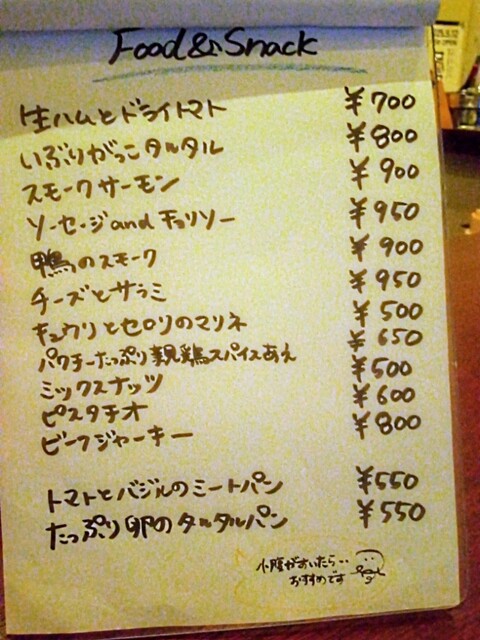 Food & Snack
生ハムとドライトマト ¥700
いぶりがっこタルタル ¥800
スモークサーモン ¥900
ソーセージandチョリソー ¥950
鴨のスモーク ¥900
チーズとサラミ ¥950
キュウリとセロリのマリネ ¥500
パクチーたっぷり親鶏スパイスあえ ¥650
ミックスナッツ ¥500
ピスタチオ ¥600
ビーフジャーキー ¥800
トマトとバジルのミートパン ¥550
たっぷり卵のタルタルパン ¥550
小腹がすいたら…
おすすめです